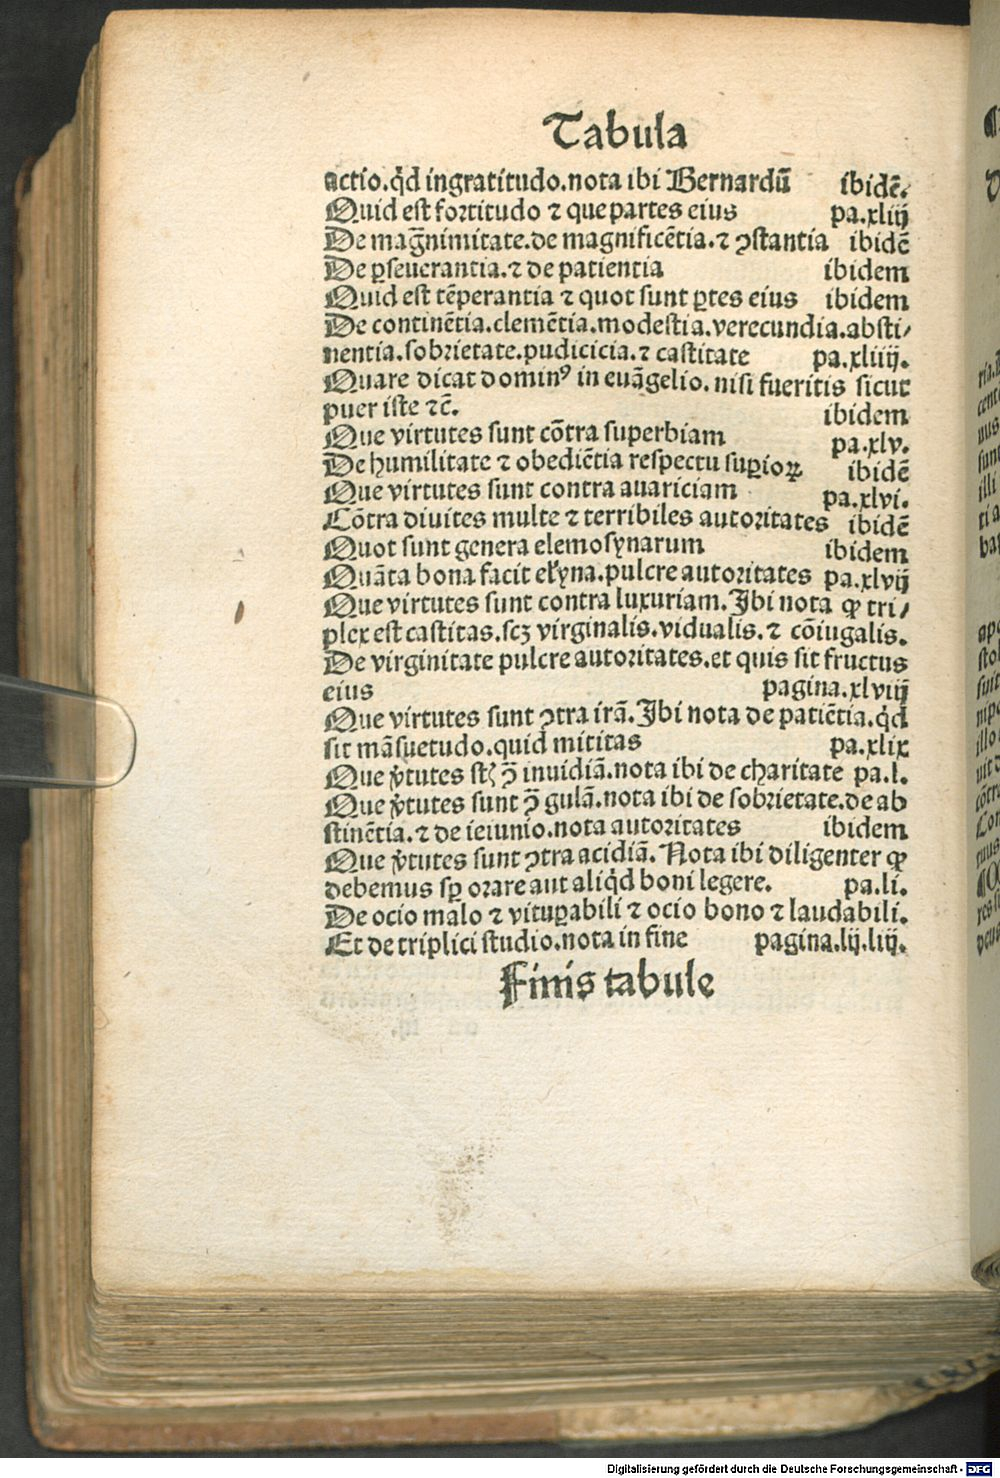 Tabula
actio.qd̄ ingratitudo.nota ibi Bernardū ibidē.
Quid est fortitudo ⁊ que partes eius pa.xliij
De mag̅nimitate.de magnificētia.⁊ ꝯstantia ibidē
De ꝑseuerantia.⁊ de patientia ibidem
Quid est tēperantia ⁊ quot sunt ꝑtes eius ibidem
De continētia.clemētia.modestia.verecundia.absti/
nentia.sobrietate.pudicicia.⁊ castitate pa.xliiij.
Quare dicat dominꝰ in euāgelio.nisi fueritis sicut
puer iste ⁊c̄. ibidem
Que virtutes sunt cōtra superbiam pa.xlv.
De humilitate ⁊ obediētia respectu suꝑioꝝ ibidē
Que virtutes sunt contra auariciam pa.xlvi.
Cōtra diuites multe ⁊ terribiles autoritates ibidē
Quot sunt genera elemosynarum ibidem
Quāta bona facit ełyna.pulcre autoritates pa.xlvij
Que virtutes sunt contra luxuriam.Ibi nota ꝙ tri/
plex est castitas.scꝫ virginalis.vidualis.⁊ cōiugalis.
De virginitate pulcre autoritates.et quis sit fructus
eius pagina.xlviij
Que virtutes sunt ꝯtra irā.Ibi nota de patiētia.qd̄
sit māsuetudo.quid mititas pa.xlix
Que v̓tutes st̄ ꝯ̄ inuidiā.nota ibi de charitate pa.l.
Que v̓tutes sunt ꝯ̄ gulā.nota ibi de sobrietate.de ab
stinētia.⁊ de ieiunio.nota autoritates ibidem
Que v̓tutes sunt ꝯtra acidiā.Nota ibi diligenter ꝙ
debemus sꝑ orare aut aliqd̄ boni legere. pa.li.
De ocio malo ⁊ vituꝑabili ⁊ ocio bono ⁊ laudabili.
Et de triplici studio.nota in fine pagina.lij.liij.
Finis tabule
Digitalisierung gefördert durch die Deutsche Forschungsgemeinschaft - DFG